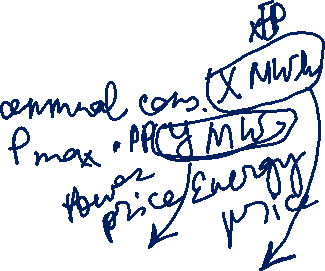 annual cons. X MWh
Pmax Y MW
Power price Energy price